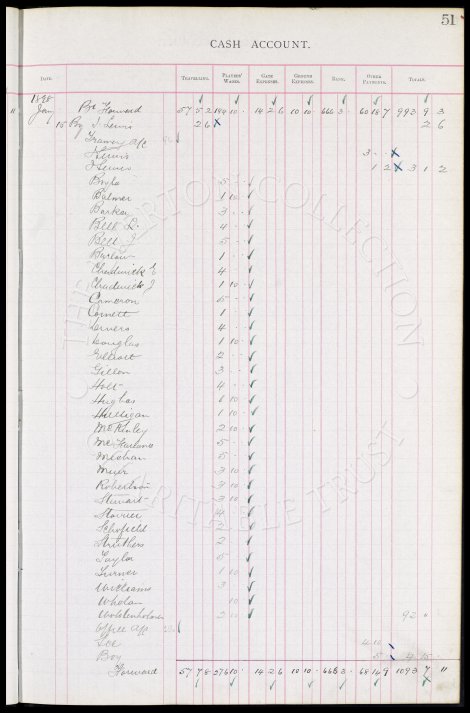 51
CASH ACCOUNT.
DATE. TRAVELLING. PLAYERS' WAGES. GATE EXPENSES. GROUND EXPENSES. BANK. OTHER PAYMENTS. TOTALS.
1898
" Jany Bt Forward 57 5 2 10 14 2 6 10 10 · 666 3 · 60 18 7 993 9 3
15 By J Lewis 2 6 2 6
J Lewis 3 · ·
J Lewis 1 2 3 1 2
5 · ·
Balmer 1 10 ·
Barkay 3 · ·
Bell L. 4 · ·
Bell J 5 · ·
Barlow 1 · ·
Chadwick E 4 · ·
Chadwick J 1 10 ·
Cameron 5 · ·
1 · ·
Divers 4 · ·
Douglas 1 10 ·
Elliott 2 · ·
Gillon 3 · ·
Holt 4 · ·
Hughes 1 10 ·
Hulligan 1 10 ·
McKinley 2 10 ·
McFarlane 5 · ·
Meehan 5 · ·
Meyer 3 10 ·
Robertson 3 10 ·
Stewart 3 10 ·
Storrier 4 · ·
Schofield 2 · ·
Struthers 2 · ·
Taylor 5 · ·
Turner 1 10 ·
Williams 3 · ·
Whelan 10 ·
Wolstenholme 3 10 · 92 "
Office a/c
4 10
Boy 5 4 15 ·
Forward 57 7 8 10 · 14 2 6 10 10 · 666 3 · 68 14 9 1093 7 "
THE EVERTON COLLECTION
CHARITABLE TRUST